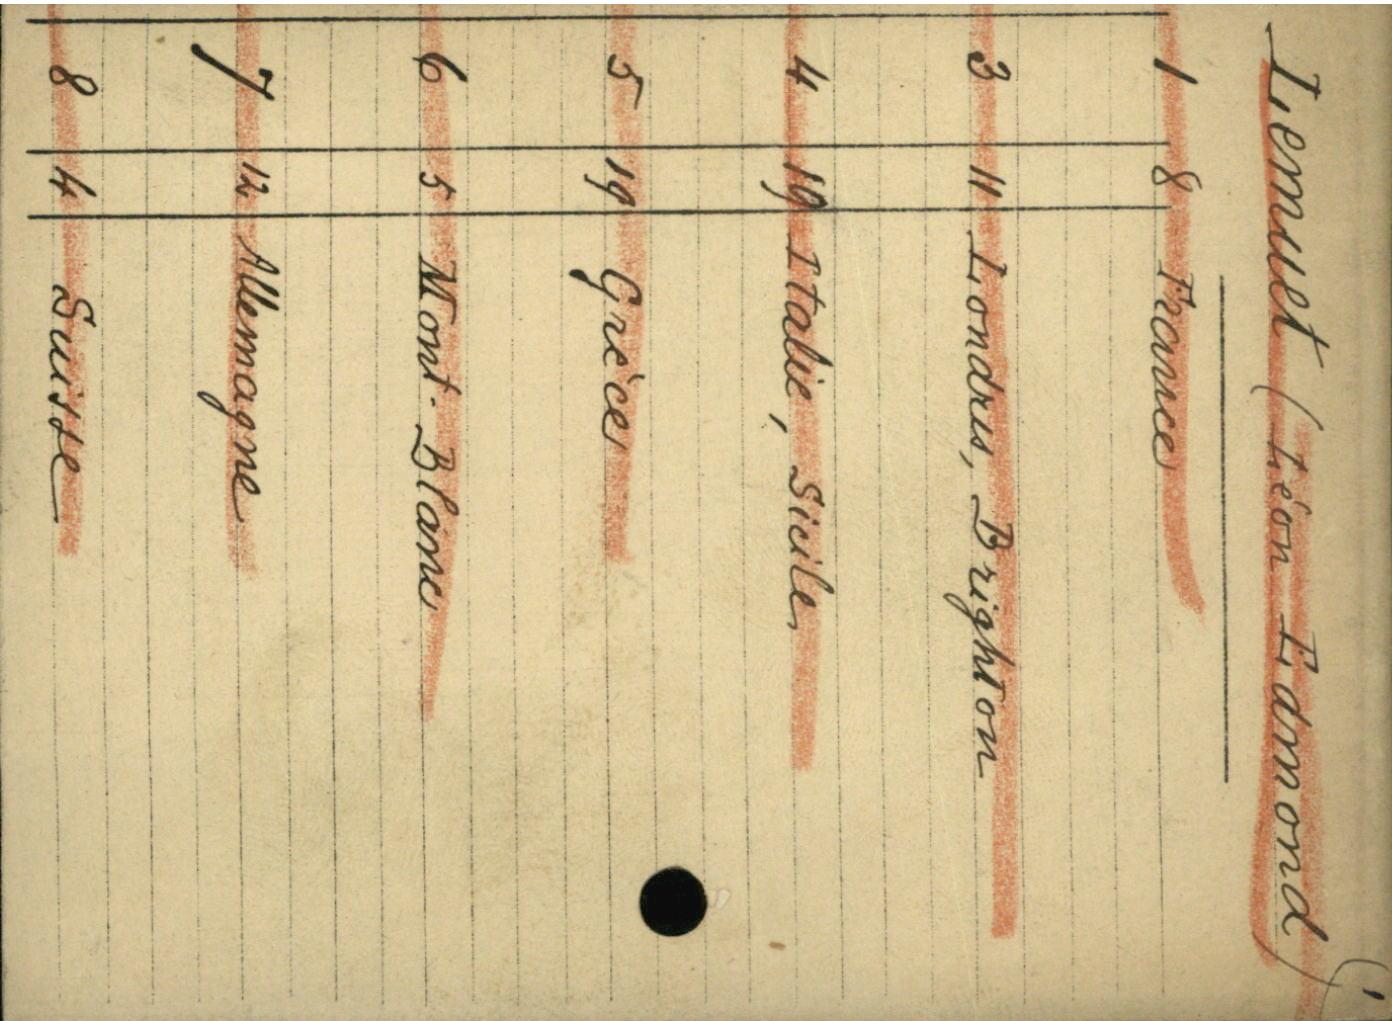 1
Lemuet (Léon Edmond)
1 8 France
3 11 Londres, Brighton
4 19 Italie, Sicile
5 19 Grèce
6 5 Mont-Blanc
7 12 Allemagne
8 4 Suisse